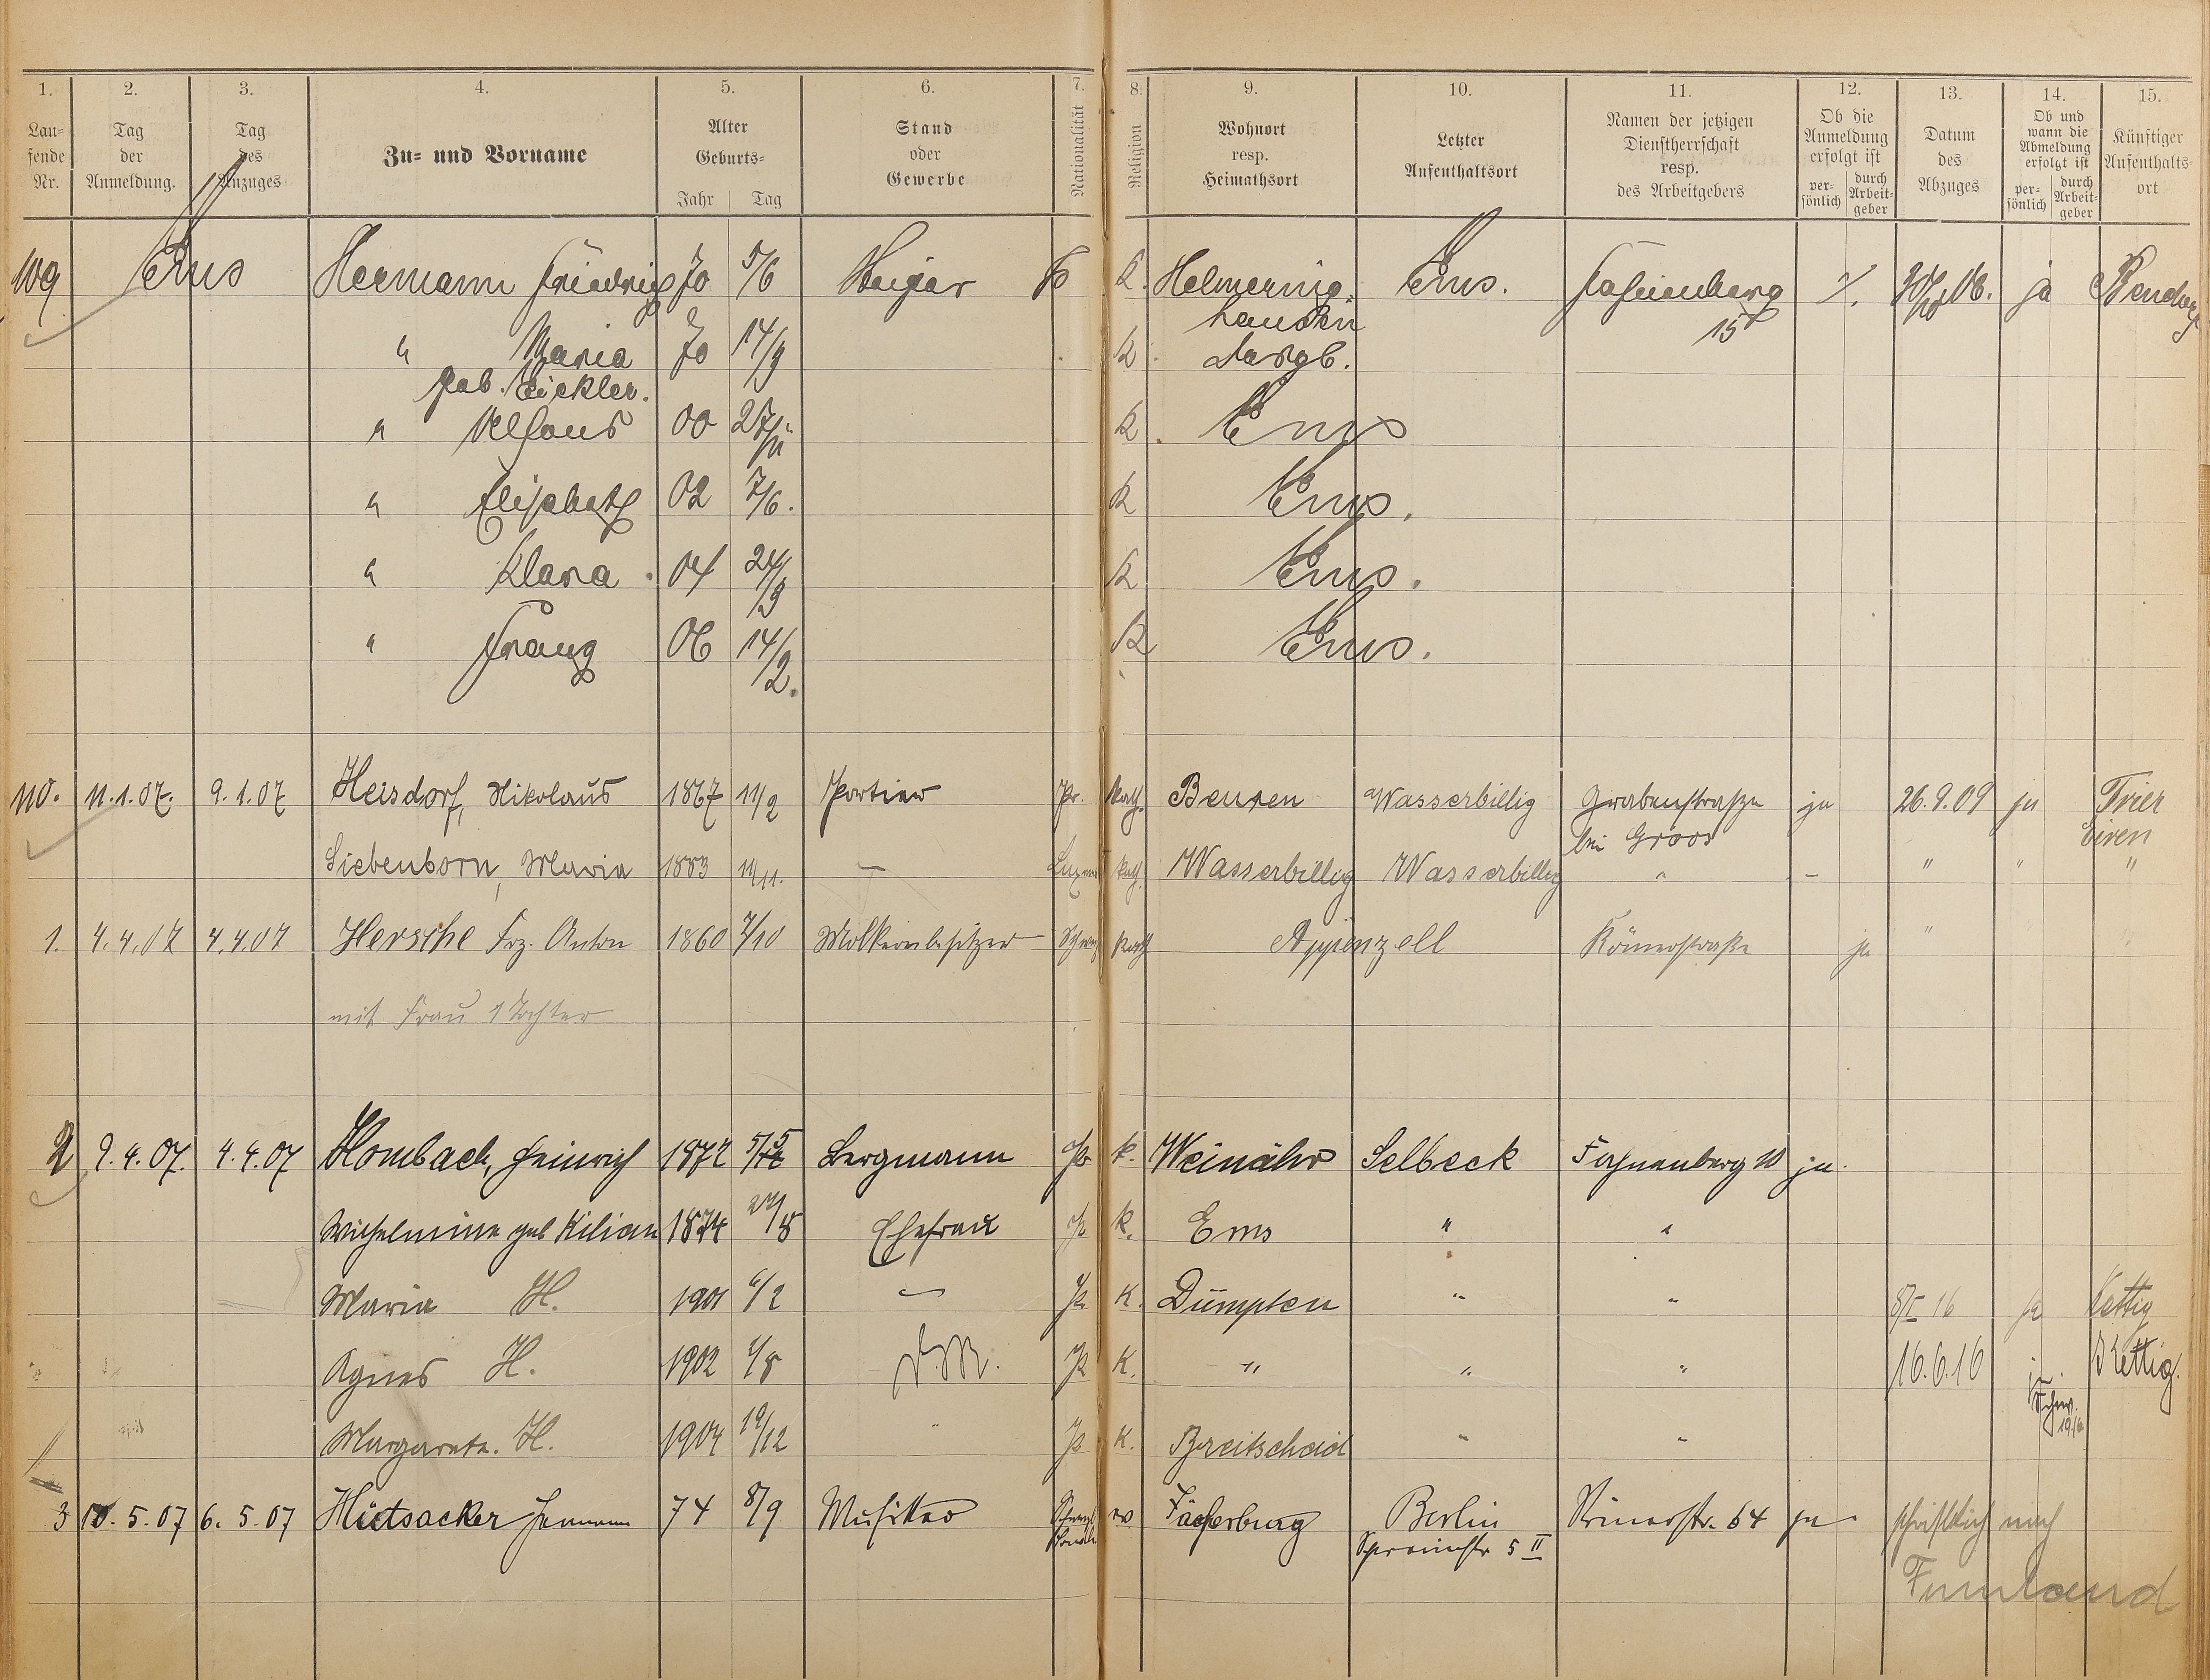 1. 2. 3. 4. 5. 6. 7. 8. 9. 10. 11. 12. 13. 14. 15.
Lau-
fende
Nr.
Tag
der
Anmeldung.
Tag
des
Anzuges
Zu- und Vorname
Alter
Geburts-
Jahr Tag
Stand
oder
Gewerbe
Nationalität
Religion
Wohnort
resp.
Heimathsort
Letzter
Aufenthaltsort
Namen der jetzigen
Dienstherrschaft
resp.
des Arbeitgebers
Ob die
Anmeldung
erfolgt ist
per-
sönlich
durch
Arbeit-
geber
Datum
des
Abzuges
Ob und
wann die
Abmeldung
erfolgt ist
per-
sönlich
durch
Arbeit-
geber
Künftiger
Aufenthalts-
ort
109 Ems Hermann Friedrich 70 5/6 Steiger K. Helmering- Ems. Fahnenberg 15 ja Bendorf
hausen
" Maria 70 14/9 K
geb. Eickler.
" Alfons 00 K Ems
" Elisabeth 02 7/6. K Ems.
" Klara 04 24/9 K Ems.
" Franz 06 14/2. K Ems.
110. 11.1.07. 9.1.07 Heisdorf, Nikolaus 1867 11/2 Portier Pr. kath. Beuren Wasserbillig Grabenstraße ja 26.9.09 ja Trier
bei Groos Eiren
Siebenborn, Maria 1883 11/11. — Luxem kath. Wasserbillig Wasserbillig " – " " "
1. 4.4.07 4.4.07 Hersche Frz. Anton 1860 7/10 Molkereibesitzer Schweiz kath Appenzell Römerstraße ja " "
mit Frau 1 Tochter
2 9.4.07. 4.4.07 Hombach, Heinrich 1872 5/5 Bergmann Pr k. Weinähr Selbeck Fahnenberg 10 ja.
Wilhelmine geb Kilian 1874 24/8 Ehefrau Pr k. Ems " "
Maria H. 1901 6/2 – Pr K. Dümpten " " 8/I 16 ja Kettig
Agnes H. 1902 1/8 Pr K. " " " 16.6.16 ja. Kettig.
Margareta. H. 1904 19/12 " Pr K. Breitscheid " "
3 10.5.07 6.5.07 Hietsacker Hermann 74 8/9 Musiker ev Berlin Römerstr. 64 ja schriftlich nach
5 II Finnland